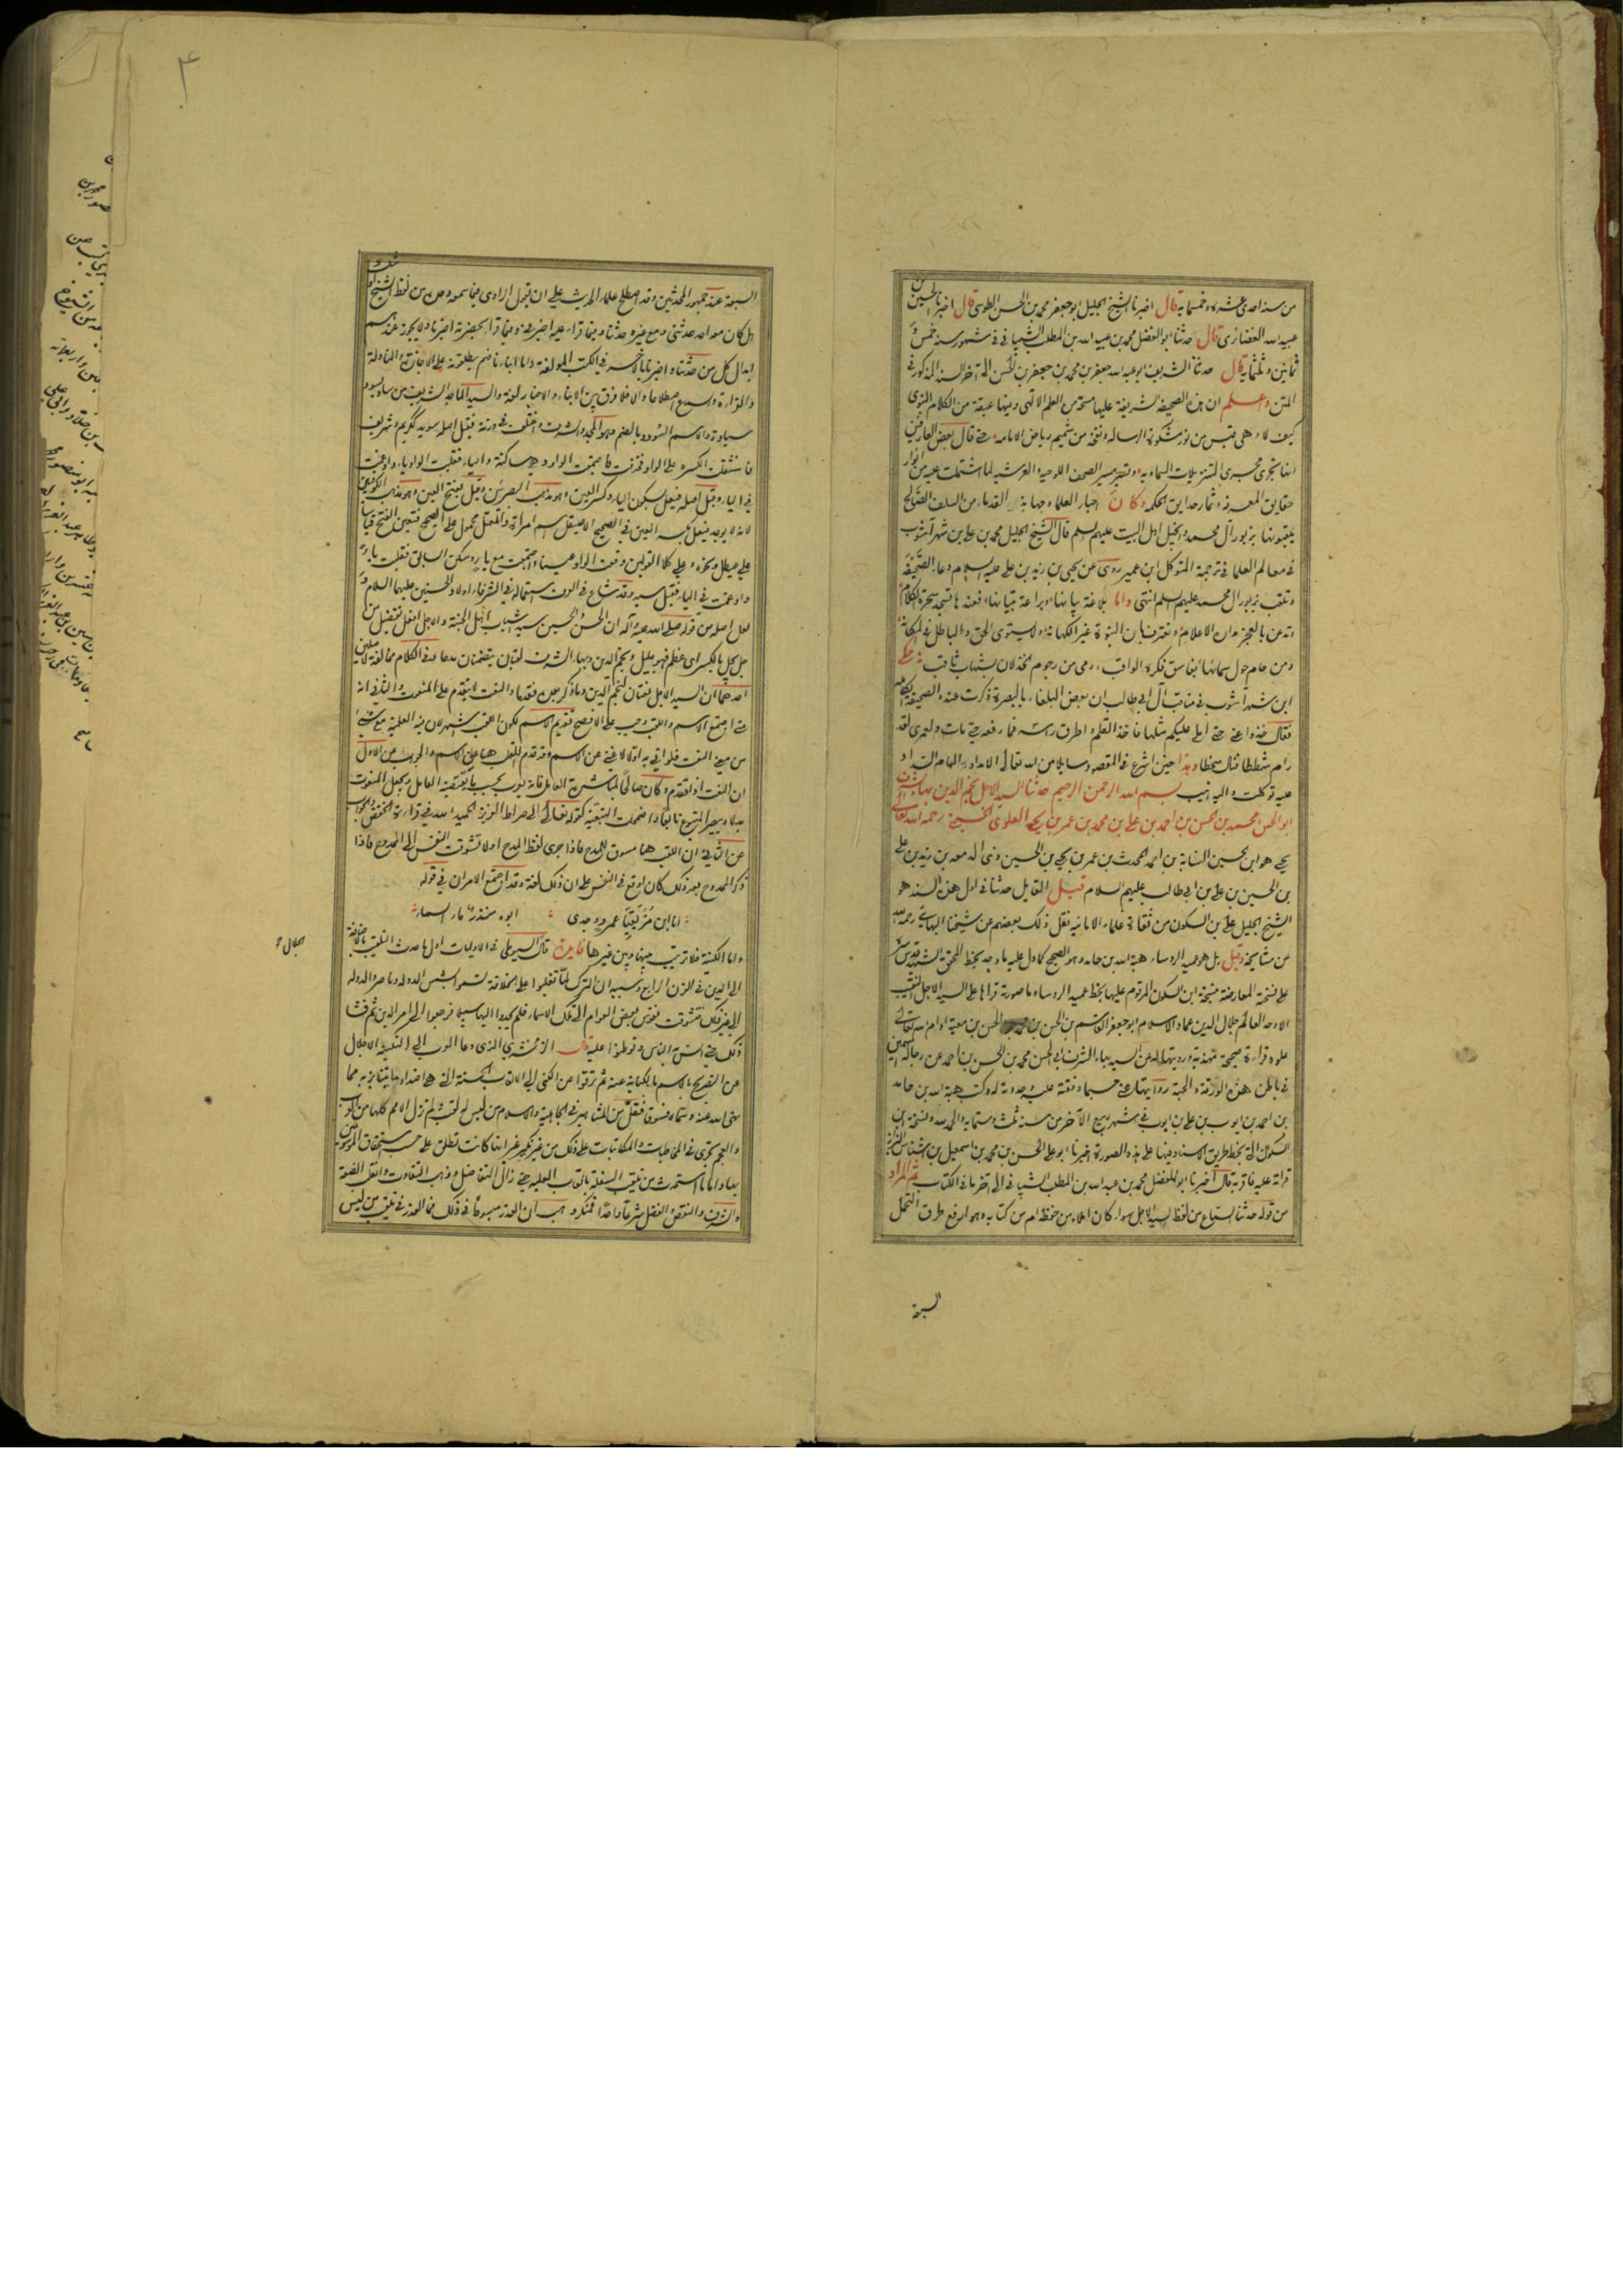 من سنة احدى عشرة وخمسمايه قال اخبرنا الشيخ الجليل ابو جعفر محمد بن الحسن الطوسى قال اخبرنا الحسين بن
عبيد الله الغضائرى قال حدثنا ابو الفضل محمد بن عبيد الله بن المطلب الشيبانى فى شهور سنة خمس و
ثمانين وثلثمايه قال حدثنا الشريف ابو عبد الله جعفر بن محمد بن جعفر بن الحسن الى آخر السند المذكور فى
المتن واعلم ان هذه الصحيفة الشريفة عليها مسحة من العلم الالهى وفيها عبقة من الكلام النبوى
كيف لا وهى قبس من نور مشكوة الرسالة ونفحة من شميم رياض الامامة حتى قال بعض العارفين
انها تجرى مجرى التنزيلات السماويه وتسير مسير الصحف اللوحيه والعرشيه لما اشتملت عليه من انوار
حقايق المعرفه وثمار حدايق الحكمه وكان احبار العلماء وجهابذة القدماء من السلف الصالح
يلقبونها بزبور آل محمد وانجيل اهل البيت عليهم السلم قال الشيخ الجليل محمد بن على بن شهرآشوب
فى معالم العلما فى ترجمة المتوكل ابن عمير روى عن يحيى بن زيد بن على عليه السلام دعاء الصحيفة
وتلقب بزبور ال محمد عليهم السلم انتهى واما بلاغة بيانها وبراعة تبيانها فعندها تسجد سحرة الكلام
وتذعن بالعجز مدارة الاعلام وتعترف بان النبوة غير الكهانة ولا يستوى الحق والباطل فى المكانة
ومن حام حول سمائها بغاسق فكره الواقب رمى من رجوم الخذلان بشهاب ثاقب حكى
ابن شهرآشوب فى مناقب آل ابى طالب ان بعض البلغاء بالبصرة ذكرت عنده الصحيفة الكاملة
فقال خذوا عنى حتى املى عليكم مثلها فاخذ القلم واطرق راسه فما رفعه حتى مات ولعمرى لقد
رام شططا فنال سخطا وهذا حين اشرع فى المقصود سايلا من الله تعالى الامداد والهام السداد
عليه توكلت واليه انيب بسم الله الرحمن الرحيم حدثنا السيد الاجل نجم الدين بهاء الشرف
ابو الحسن محمد بن الحسن بن احمد بن على بن محمد بن عمر بن يحيى العلوى الحسينى رحمه الله تعالى
يحيى هو ابن الحسين النسابة بن احمد المحدث بن عمر بن يحيى بن الحسين ذى الدمعه بن زيد بن على
بن الحسين بن على بن ابى طالب عليهم السلام قيل القايل حدثنا فى اول هذا السند هو
الشيخ الجليل على بن السكون من ثقاة علماء الاماميه نقل ذلك بعضهم عن شيخنا البهائى رحمه الله
عن مشايخه وقيل بل هو عميد الروساء هبة الله بن حامد وهو الصحيح كما دل عليه ما وجد بخط المحقق الشهيد قدس سره
على نسخة المعارضة بنسخة ابن السكون المرقوم عليها بخط عميد الروساء ما صورته قراها على السيد الاجل النقيب
الاوحد العالم جلال الدين عماد الاسلام ابو جعفر القاسم بن الحسن بن محمد بن الحسن بن معية ادام الله تعالى
علوه قراءة صحيحة مهذبة ورويتها له عن السيد بهاء الشرف ابى الحسن محمد بن الحسن بن احمد عن رجاله المسمين
فى باطن هذه الورقة وابحته روايتها عنى حسبما وقفته عليه وحددته له وكتب هبة الله بن حامد
بن احمد بن ايوب بن على بن ايوب فى شهر ربيع الآخر من سنة ثلث وستمايه والحمد لله ونسخة ابن
السكون التى بخطه طريق الاسناد فيها على هذه الصورة اخبرنا ابو على الحسن بن محمد بن اسمعيل بن اشناس البزاز
قراءة عليه فاقر به قال اخبرنا ابو المفضل محمد بن عبد الله بن المطلب الشيبانى الى آخر ما فى الكتاب ثم المراد
من قوله حدثنا السماع من لفظ السيد الاجل سواء كان املاء من حفظه ام من كتابه وهو ارفع طرق التحمل
السبعة
السبعة عند جمهور المحدثين وقد اصطلح علماء الحديث على ان يقول الراوى فيما سمعه وحده من لفظ الشيخ او شك
هل كان معه احد حدثنى ومع غيره حدثنا وفيما قراء عليه اخبرنى وفيما قرا بحضرته اخبرنا ولا يجوز عندهم
ابدال كل من حدثنا واخبرنا بالآخر فى الكتب المولفة واما انباء نا فهم يطلقونه على الاجازة والمناولة
والقراءة والسماع اصطلاحا والا فلا فرق بين الانباء والاخبار لغة والسيد الماجد الشريف من ساد يسود
سيادة والاسم السودد بالضم وهو المجد والشرف واختلف فى وزنه فقيل اصله سويد ككريم وشريف
فاستثقلت الكسرة على الواو فحذفت فاجتمعت الواو وهى ساكنة والياء فقلبت الواو ياء وادغمت
فى الياء وقيل اصله فيعل بسكون الياء وكسر العين وهو مذهب البصريين وقيل بفتح العين وهو مذهب الكوفيين
لانه لا يوجد فيعل بكسر العين فى الصحيح الا صيقل اسم امراة والمعتل محمول على الصحيح فتعين الفتح قياسا
على عيطل ونحوه وعلى كلا القولين وقعت الواو عينا واجتمعت مع ياء وسكن السابق فقلبت ياء
وادغمت فى الياء فقيل سيد وقد شاع فى العرف استعماله فى الشرفاء اولاد الحسنين عليهما السلام و
لعل اصله من قوله صلى الله عليه وآله ان الحسن والحسين سيدا شباب اهل الجنة والاجل افعل تفضيل من
جل يجل بالكسر اى عظم فهو جليل ونجم الدين وبهاء الشرف لقبان يتضمنان مدحا وفى الكلام مخالفة لاصلين
احدهما ان السيد الاجل نعتان لنجم الدين وما ذكر بعده فقدما والنعت لا يتقدم على المنعوت والثانى انه
متى اجتمع الاسم واللقب وجب على الافصح تقديم الاسم لكون اللقب اشهر لان فيه العلمية مع شىء
من معنى النعت فلو اتى به اولا لاغنى عن الاسم وقد تقدم اللقب هنا على الاسم والجواب عن الاول
ان النعت اذا تقدم وكان صالحا لمباشرة العامل فانه يعرب بحسب ما يقتضيه العامل ويجعل المنعوت
بدلا ويصير المتبوع تابعا واضمحلت التبعية كقوله تعالى الى صراط العزيز الحميد الله فى قراءة الخفض والجواب
عن الثانى ان اللقب هنا مسوق للمدح فاذا جرى لفظ المدح اولا تشوقت النفس الى الممدوح فاذا
ذكر الممدوح بعد ذلك كان اوقع فى النفس على ان ذلك لغة وقد اجتمع الامران فى قوله
انا ابن مزيقيا عمرو وجدى ابوه منذر ماء السماء
واما الكنية فلا ترتيب بينها وبين غيرها فايدة قال السيوطى فى الاوليات اول ما حدث التلقيب بالاضافة
الى الدين فى القرن الرابع وسببه ان الترك لما تغلبوا على الخلافة تسموا بشمس الدوله وناصر الدوله
الى غير ذلك فتشوقت نفوس بعض العوام الى تلك الاسماء فلم يجدوا اليها سبيلا فرجعوا الى امر الدين ثم فشا
ذلك حتى انس به الناس وتوطئوا عليه قال الزمخشرى الذى دعا العرب الى التكنية الاجلال
عن التصريح بالاسم بالكناية عنه ثم ترقوا عن الكنى الى الالقاب الحسنة التى هى اضداد ما يتنابز به مما
نهى الله عنه وسماه فسوقا فقل من المشاهير فى الجاهلية والاسلام من ليس له لقب ولم تزل الامم كلها من العرب
والعجم تجرى فى المخاطبات والمكاتبات على ذلك من غير نكير غير انها كانت تطلق على حسب استحقاق الموسومين
بها واما ما استحدث من تلقيب السفلة بالقاب العلية حتى زال التفاضل وذهب التفاوت وانقلب الضعة
والشرف والنقص والفضل شرعا واحدا فمنكر وهب ان العذر مبسوط فى ذلك فما العذر فى تلقيب من ليس